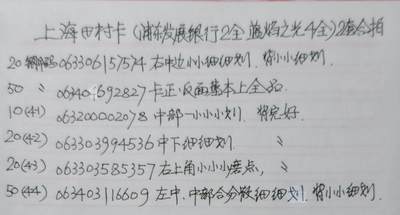 上海田村卡(浦东发展银行2全 蓝焰之光4全)2套合拍
20 063306157574 右中边小小细细划. 背小小细划.
50 〃 063401692827 卡正.反面基本上全品.
10(4-1) 063200002078 中部一小小小划. 背完好.
20(4-2) 063303994536 中下细细划. 〃
20(4-3) 063303585357 右上角小小小磨点, 〃
50(4-4) 063403116609 左中.中部合分散细细划. 背小小细划.